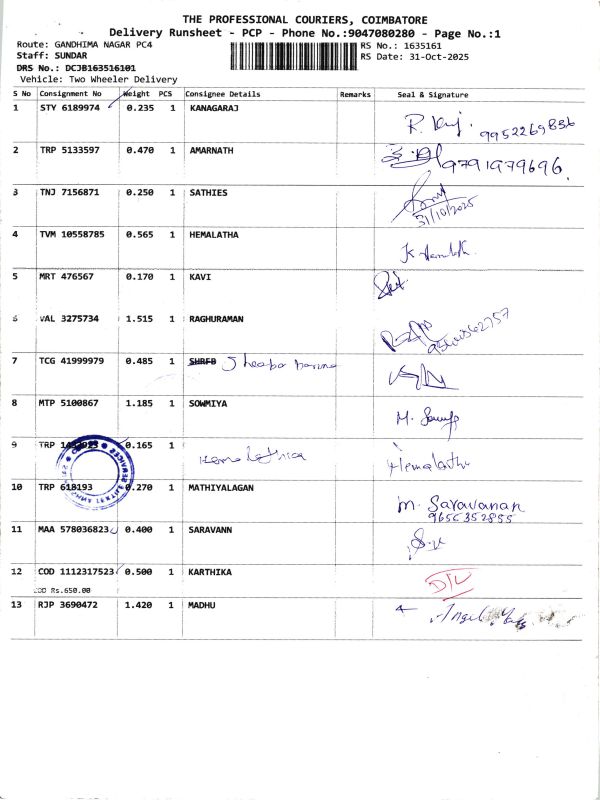 THE PROFESSIONAL COURIERS, COIMBATORE
Delivery Runsheet - PCP - Phone No.:9047080280 - Page No.:1
Route: GANDHIMA NAGAR PC4
RS No.: 1635161
Staff: SUNDAR
RS Date: 31-Oct-2025
DRS No.: DCJB163516101
Vehicle: Two Wheeler Delivery
S No Consignment No Weight PCS Consignee Details Remarks Seal & Signature
1 STY 6189974 0.235 1 KANAGARAJ 9952269836
2 TRP 5133597 0.470 1 AMARNATH 9791979696.
3 TNJ 7156871 0.250 1 SATHIES 31/10/2025
4 TVM 10558785 0.565 1 HEMALATHA
5 MRT 476567 0.170 1 KAVI
6 VAL 3275734 1.515 1 RAGHURAMAN
7 TCG 41999979 0.485 1
8 MTP 5100867 1.185 1 SOWMIYA
9 TRP 0.165 1 Hemalatha
10 TRP 618193 0.270 1 MATHIYALAGAN m. Saravanan
9655352855
11 MAA 578036823 0.400 1 SARAVANN S.V
12 COD 1112317523 0.500 1 KARTHIKA D/L
COD Rs.650.00
13 RJP 3690472 1.420 1 MADHU Angel